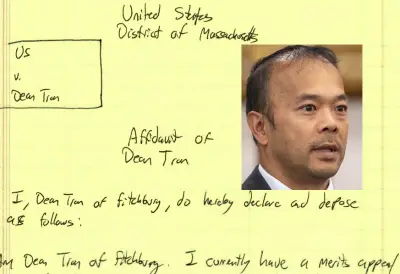 United States
District of Massachusetts
US
v.
Dean Tran
Affidavit of
Dean Tran
I, Dean Tran of Fitchburg, do hereby declare and depose
as follows:
am Dean Tran of Fitchburg. I currently have a merits appeal